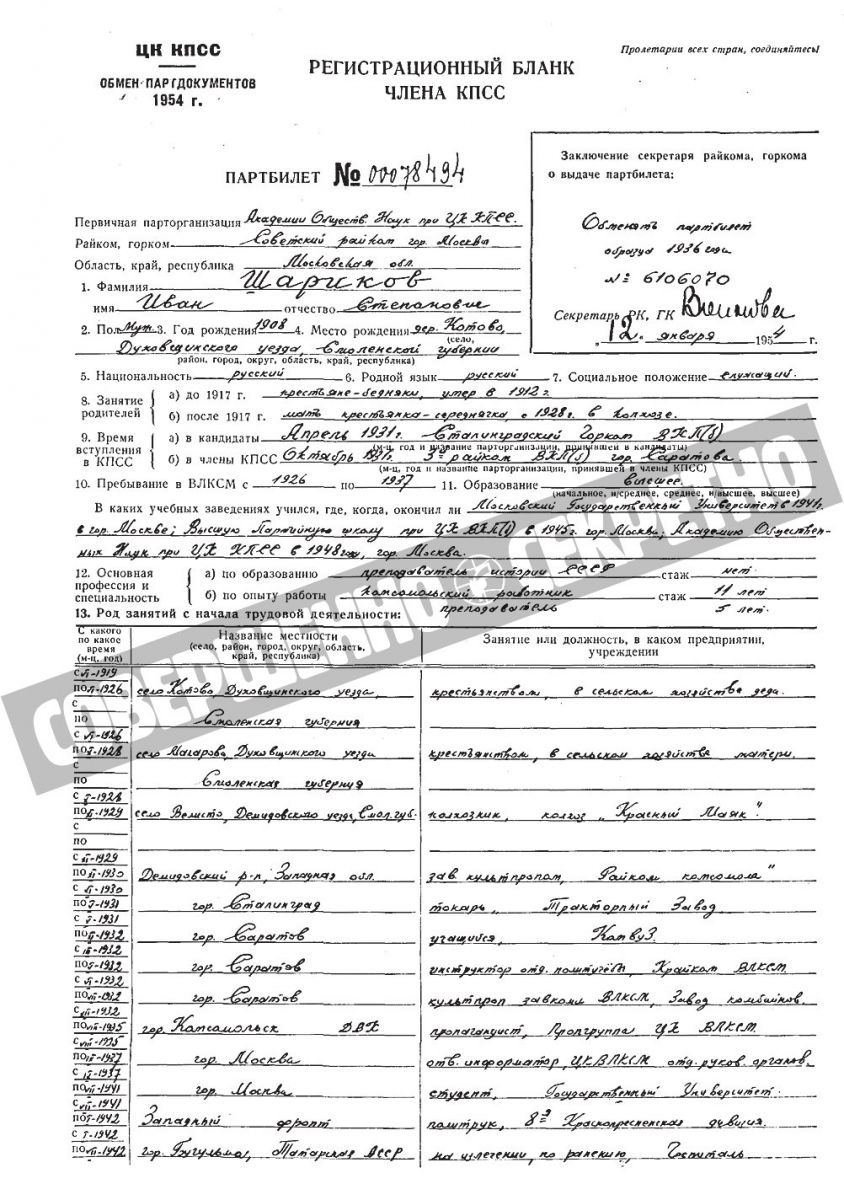 ЦК КПСС
ОБМЕН ПАРТДОКУМЕНТОВ
1954 г.
Пролетарии всех стран, соединяйтесь!
РЕГИСТРАЦИОННЫЙ БЛАНК
ЧЛЕНА КПСС
ПАРТБИЛЕТ № 00078494
Заключение секретаря райкома, горкома
о выдаче партбилета:
Обменять партбилет
образца 1936 года
№ 6106070
Секретарь РК, ГК
"12" января 1954 г.
Первичная парторганизация Академии Обществ. Наук при ЦК КПСС.
Райком, горком Советский райком гор. Москва
Область, край, республика Московская обл.
1. Фамилия Шариков
имя Иван отчество Степанович
2. Пол муж. 3. Год рождения 1908 4. Место рождения дер. Котово,
(село,
Духовщинского уезда, Смоленской губернии
район, город, округ, область, край, республика)
5. Национальность русский 6. Родной язык русский 7. Социальное положение служащий.
8. Занятие родителей
а) до 1917 г. крестьяне-бедняки, умер в 1912 г.
б) после 1917 г. мать крестьянка-середнячка, с 1928 г. в колхозе.
9. Время вступления в КПСС
а) в кандидаты Апрель 1931 г. Сталинградский Горком ВКП(б)
(м-ц, год и название парторганизации, принявшей в кандидаты)
б) в члены КПСС Октябрь 1931 г. 3й райком ВКП(б) гор. Саратова.
(м-ц, год и название парторганизации, принявшей в члены КПСС)
10. Пребывание в ВЛКСМ с 1926 по 1937 11. Образование высшее.
(начальное, н/среднее, среднее, н/высшее, высшее)
В каких учебных заведениях учился, где, когда, окончил ли Московский Государственный Университет в 1941 г.
в гор. Москве; Высшую Партийную школу при ЦК ВКП(б) в 1945 г. гор. Москва; Академию Обществен-
ных Наук при ЦК КПСС в 1948 году, гор. Москва.
12. Основная профессия и специальность
а) по образованию преподаватель истории СССР стаж нет.
б) по опыту работы комсомольский работник стаж 11 лет
преподаватель 5 лет.
13. Род занятий с начала трудовой деятельности:
С какого по какое время (м-ц, год)
Название местности
(село, район, город, округ, область, край, республика)
Занятие или должность, в каком предприятии, учреждении
С 1919
по 1926 село Котово, Духовщинского уезда, крестьянством, в сельском хозяйстве деда.
С
по Смоленская губерния
С 1926
по 1928 село Магарово, Духовщинского уезда крестьянством, в сельском хозяйстве матери.
С
по Смоленская губерния
С 1928
по 1929 село Велисто, Демидовского уезда, Смол. губ. колхозник, колхоз "Красный Маяк".
С
по
С 1929
по 1930 Демидовский р-н, Западная обл. зав. культпропом, Райком комсомола"
С 1930
по 1931 гор. Сталинград токарь, Тракторный Завод
С 1931
по 1932 гор. Саратов учащийся, КомвуЗ.
С 1932
по 1932 гор. Саратов инструктор отд. политучёбы, Крайком ВЛКСМ
С 1932
по 1932 гор. Саратов культпроп завкома ВЛКСМ, Завод комбайнов.
С 1932
по 1935 гор. Комсомольск ДВК пропагандист, Пропгруппа ЦК ВЛКСМ
С 1935
по 1937 гор. Москва отв. информатор, ЦК ВЛКСМ отд. руков. органов.
С 1937
по 1941 гор. Москва студент, Государственный Университет.
С 1941
по 1942 Западный фронт политрук, 8я Краснопресненская дивизия.
С 1942
по 1942 гор. Бугульма, Татарская АССР на излечении, по ранению, Госпиталь
СОВЕРШЕННО СЕКРЕТНО